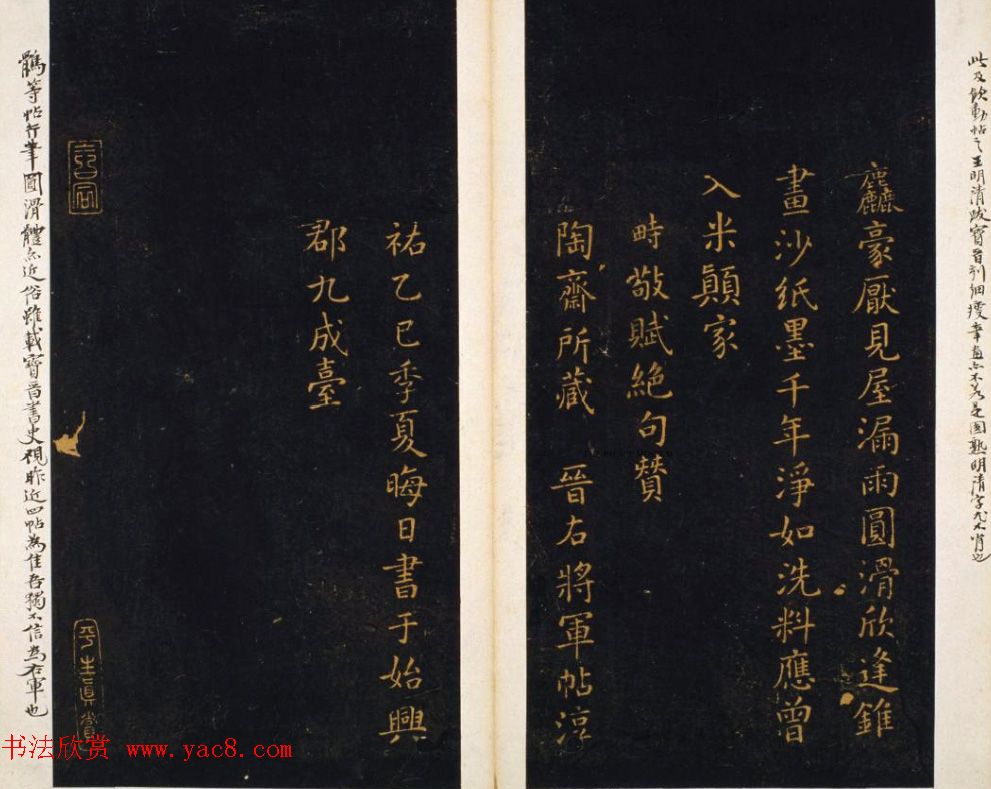 此及飲動帖之王明清跋寶晉刻細瘦幸直亦不若是圓熟明清字尤不肖也
麤豪厭見屋漏雨圓滑欣逢錐
畫沙紙墨千年淨如洗料應曾
入米顛家
時敬賦絕句贊
陶齋所藏 晉右將軍帖淳
祐乙巳季夏晦日書于始興
郡九成臺
平生真賞
鵝等帖行筆圓滑體亦近俗雖載寶晉書史視昨近四帖為佳吾獨不信為右軍也
书法欣赏 www.yac8.com